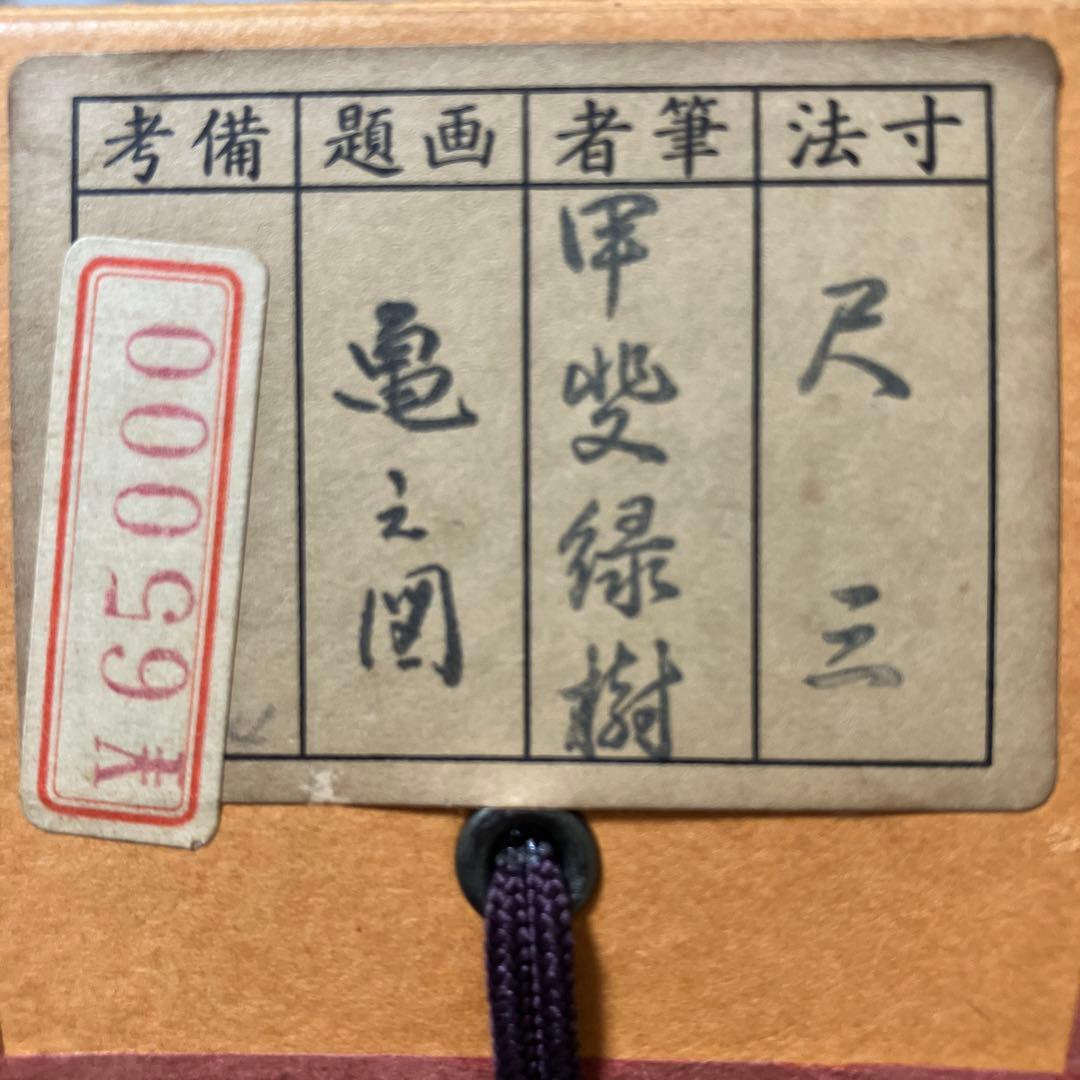 寸法
尺三
筆者
甲斐緑樹
画題
亀之図
備考
¥65000